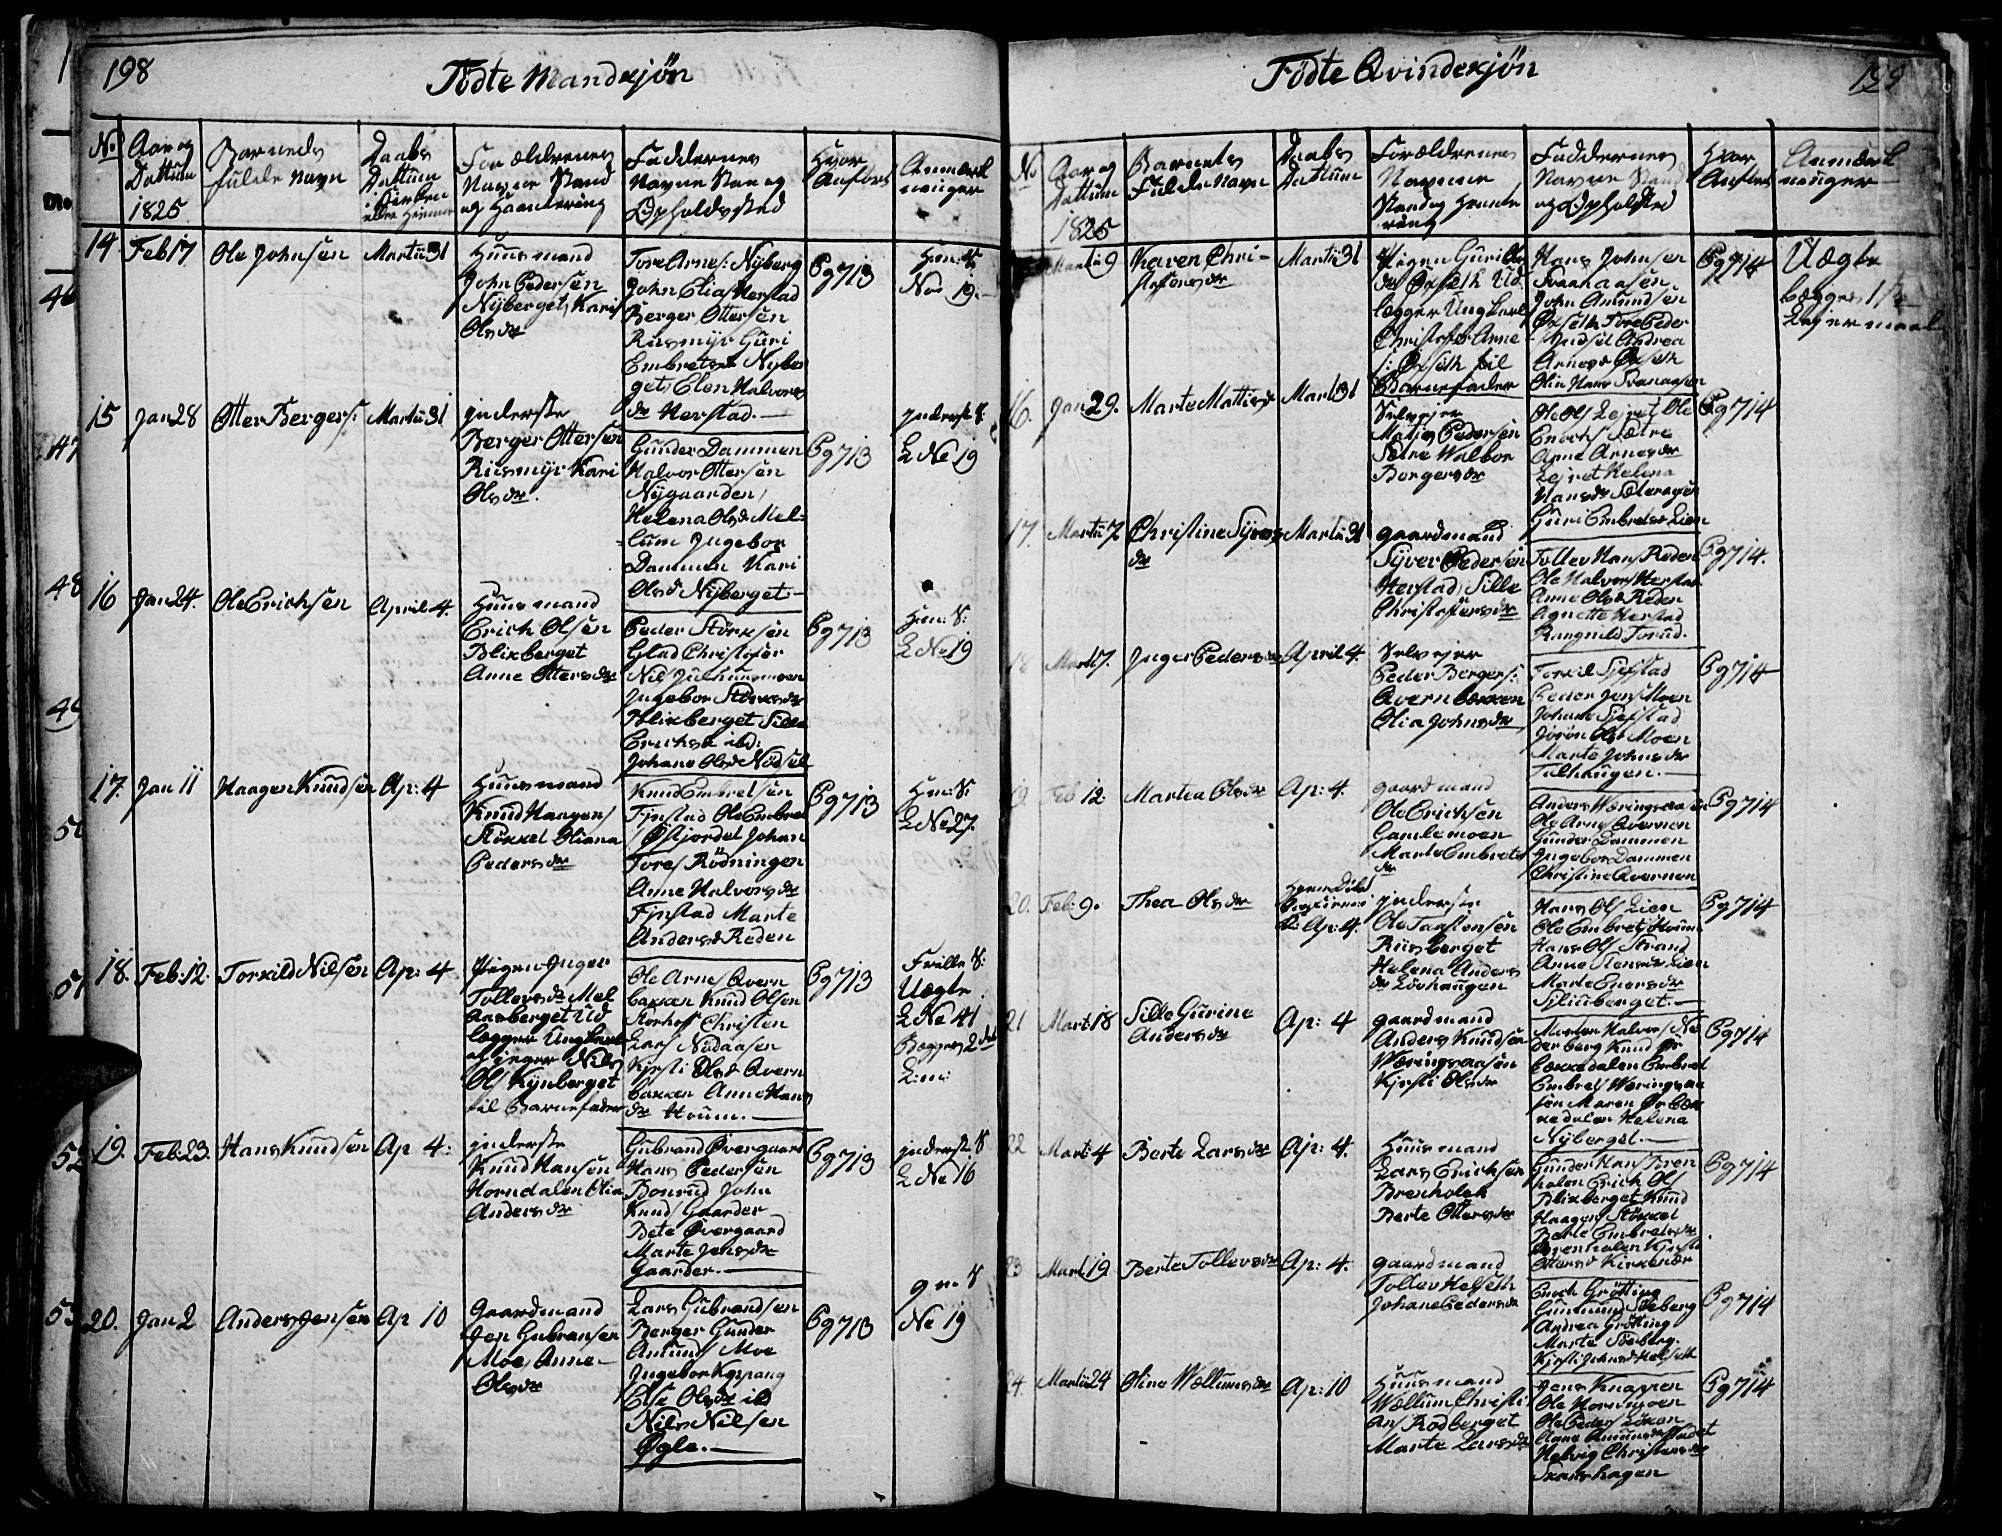 198
Fødte Mandkjøn
No
Aar og Dattum 1825
Barnets fulde Navn
Daabs Dattum i Kirken eller Hjemme
Forældrenes Navne Stand og Haantering
Faddernes Navne Stan og Opholdssted
Hvor Anført
Anmærk ninger
14
Feb 17
Ole Johnsen
Martii 31
Huusmand
John Pedersen
Nÿberget, Kari
Olsdr
Tore Arnes: Nÿberg
John Elias Herstad
Berger Ottersen
Riismÿr Guri
Embretsdr Nÿber
get, Elen Halvors
dr Herstad.
Pg 713
No 19.
15
Jan 28
Otter Bergers:
Martii 31
Jnderste
Berger Ottersen
Riismÿr Kari
Olsdr.
Gunder Dammen
Halvor Ottersen
Nÿgaarden
Helena Olsd Mel-
lum Jngebor
Dammen Kari
Olsd Nÿberget
Pg 713
L No 19
16
Jan 24.
Ole Erichsen
April 4.
Huusmand
Erich Olsen
Blixberget
Anne Ottersdr
Peder Størksen
Glad Christofer
Jngebor Størksdr
Blixberget Sille
Erichsd ibd:
Johane Olsd Nødsel
Pg 713
L No 19
17.
Jan 11
Haagen Knudsen
Ap: 4
Huusmand
Knud Haagens
Støkkel Oliana
Pedersdr
Knud Embretsen
Fjnstad Ole Embret
Østjordet Johan
Tores Rødningen
Anne Halvorsdr
Fjnstad Marte
Andersd Reden
Pg 713
L No 27.
18.
Feb: 12
Torkild Nilsen
Ap: 4
Pigen Jnger
Tollevsdr Mel
aasberget Ud
lægger Ungkarl
Nils
Ols Kÿnberget
til Barnefader
Ole Arnes Qvern
bakken Knud Olsen
Storhof Christen
Lars Nødaasen
Kjrsti Olsd Qvern
bakken Anne Hans
dr Hvum.
Pg 713
Uægte
L No 41
Begges 2det
Leier
19.
Feb: 23.
Hans Knudsen
Ap 4:
Jnderste
Knud Hansen
Horndalen Olia
Andersdr
Gubrand Øvergaard
Hans Pedersen
Bonrud John
Knuds Gaarder
Bete Øvergaard
Marte Jensdr
Gaarder.
Pg 713
L No 16
20.
Jan 2
Anders Jensen
Ap 10
Gaardmand
Jen Gubransen
Moe, Anne
Olsdr
Lars Gubrandsen
Berger Gunder
Amunds Moe
Jngebor Kgspang
Else Olsdr ib
Nils Nilsen
Øgle.
Pg 713
No 19
Fødte Qvindekjøn
199
No
Aar og Dattum 1825
Barnets Fulde Navn
Daabs Dattum
Forældrenes Navne Stand og Hante ring
Faddernes Navne Stand og Opholsted
Hvor Anført
Anmærk ninger
Martii 9
Karen Chri-
stofersdr
Martii 31
Pigen Guri
Øxseth Ud
lægger Ungkarl
Christofer Arne
s: Øxseth til
Barnefader
Hans Johnsen
Svanaasen
John Amundsen
Øxseth Tore Peder
Andrea
Arnesd Øxseth
Olia Hans Svanaasen
Pg 714
Uægte
begges 1ste
Lejermaal
16.
Jan 29.
Marte Mattisdr
Marti 31
Selvejer
Matis Pedersen
Sætre Walbor
Borgersdr
Ole Ols Lejret Ole
Enochs Sætre
Anne Arnesdr
Lejret Helena
Hansdr Sæteraasen
Guri Embretsdr Lien
Pg 714
17.
Martii 7
Christine Sÿvers
dr
Martii 31
gaardmand
Sÿver Pedersen
Herstad, Sille
Christofersdr
Tollev Hans Reden
Ole Halvors Herstad
Anne Olsd Reden
Agnette Herstad
Rangnild Torud.
Pg 714.
18
Mart 17.
Jnger Pedersdr
April 4.
Selvejer
Peder Bergers:
Qvernbækken
Olia Johnsdr
Torkil Sjefstad
Peder Jons Moen
Johane Sjefstad
Jørøn Olsd Moen
Marte Johnsdr
Talhaugen.
Pg 714
19.
Feb 12.
Martea Olsdr
Ap: 4.
gaardmand
Ole Erichsen
Gamlemoen
Marte Embrets
dr
Anders Wæringsaasen
Ole Arns Qvernen
Gunder Dammen
Jngebor Dammen
Christine Qvernen
Pg 714
20.
Feb: 9.
Thea Olsdr
Hjemedøbt
Ap: 4.
Jnderste
Ole Tarstensen
Riisberget
Helena Anders
dr Løvhaugen
Hans Ols Lien
Ole Embrets Hvum
Hans Ols Strand
Anne Stensdr Lien
Marte Enersdr
Siliuberget.
Pg 714
21
Mart: 18
Sille Gurine
Andersdr
Ap: 4
gaardmand
Anders Knudsen
Wæringsaasen
Kjrsti Olsdr
Morten Halvors Ne
derberg Knud Ør
bækkedalen Embret
Embrets Wæringsaa
sen Maren Ørbæk
kedalen Helena
Nÿberget.
Pg 714
22
Mart: 4
Berte Larsdr
Ap: 4.
Huusmand
Lars Erichsen
Brenholek
Berte Ottersdr
Gunder Hans Foren
holen Erich Ols
Blixberget Knud
Haagens Støkkel
Berte Embretsdr
Kjrsti
Ottersd Kirkenær
Pg 714
23
Mart. 19
Berte Tollevsdr
Ap: 4.
gaardmand
Tollev Helseth
Johane Pedersdr
Enoch Grøtting
Gunmund Søeberg
Andrea Grøtting
Marte Søeberg.
Kjrsti Johnsd Helseth
Pg 714
24.
Martii 24
Oline Wællumsdr
Ap: 10
Huusmand
Wællum Christi
ans Rødberget
Marte Larsdr
Jens Knappen
Ole Hornmoen
Ole Peders Løken
Anne Amunsdr Stadet
Helvig Christensdr
Svenshagen
Pg 714
46
47
48
49
50
51
52
53